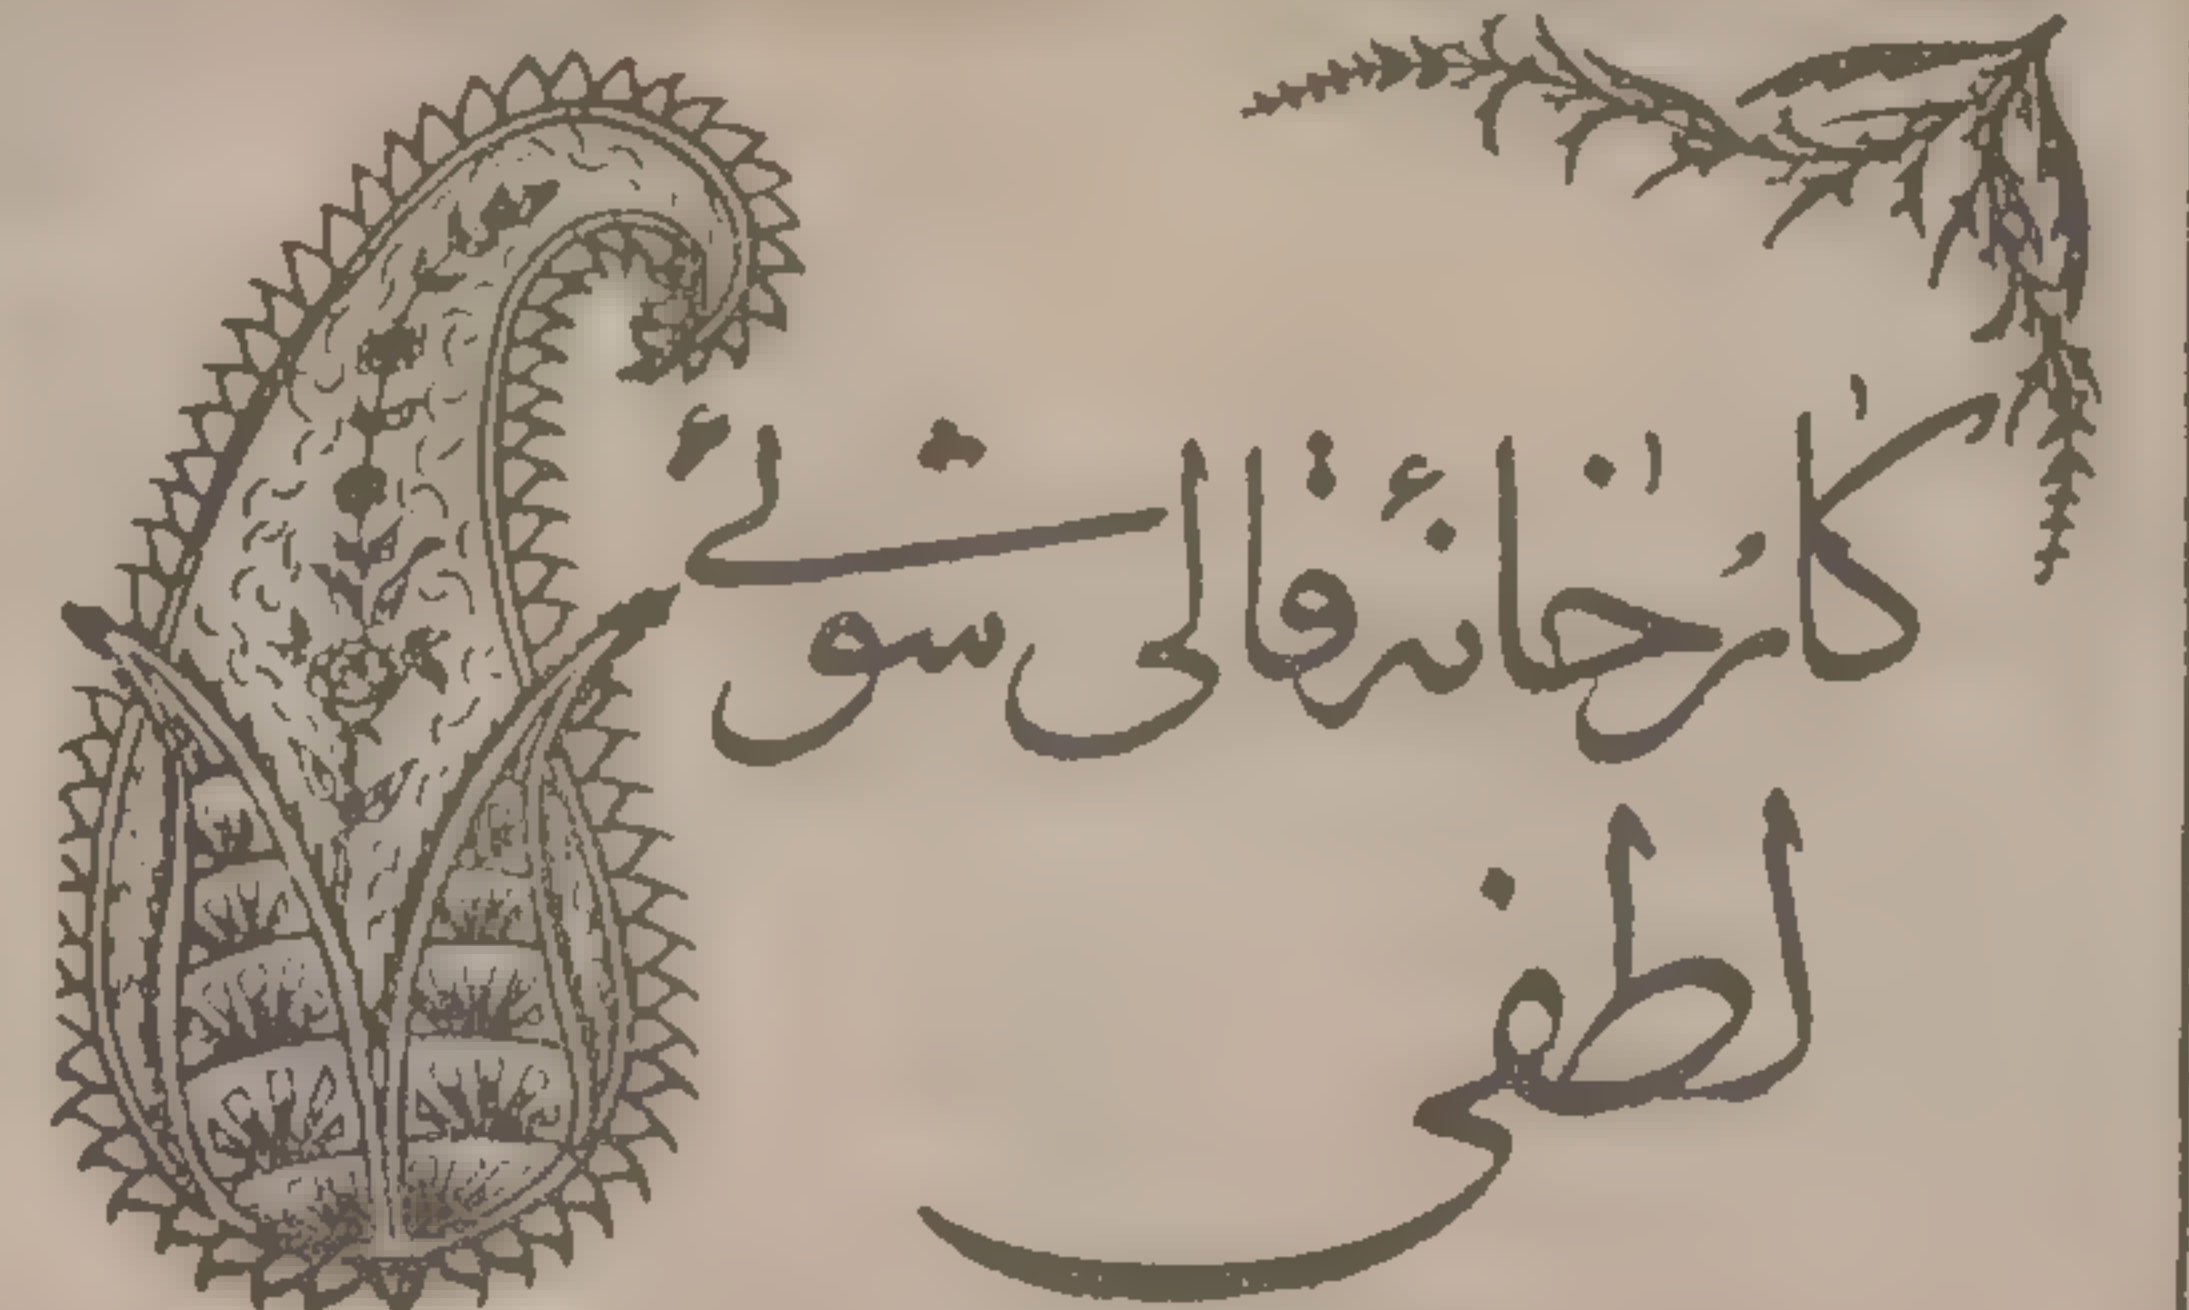 کارخانهٔ قالی‌شوئی
لطفی